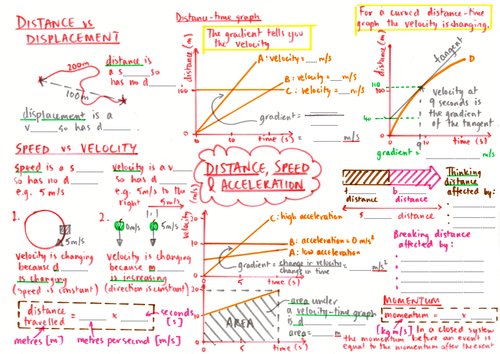 DISTANCE vs
DISPLACEMENT
200m
100m
distance is
a s____ so
has no d____.
displacement is a
v____ so has d____.
SPEED vs VELOCITY
speed is a s____
so has no d____
e.g. 5 m/s
velocity is a v____
so has d____
e.g. 5m/s to the
right 5m/s
1.
5m/s
velocity is changing
because d____
is changing
(speed is constant)
2.
0m/s
5m/s
velocity is changing
because m____
is increasing
(direction is constant)
distance
travelled = ____ x ____
metres [m]
metres per second [m/s]
seconds
[s]
Distance-time graph
The gradient tells you
the velocity
distance (m)
A: velocity = __ m/s
B: velocity = __ m/s
C: velocity = __ m/s
100
0
10
time (s)
gradient = ____ = ____
= ____ m/s
DISTANCE, SPEED
& ACCELERATION
velocity (m/s)
20
10
0
5
time (s)
C: high acceleration
B: acceleration = 0 m/s²
A: low acceleration
gradient = change in velocity
change in time = ____ m/s²
20
10
0
5
time (s)
AREA
area under
a velocity-time graph
is d____
area = ____ m
For a curved distance-time
graph the velocity is changing.
distance (m)
110
40
0
9
10
time (s)
tangent
D
velocity at
9 seconds is
the gradient
of the tangent
gradient = ____ = ____ m/s
t____
distance
b____
distance
s____ distance
Thinking
distance
affected by:
Breaking distance
affected by:
MOMENTUM
momentum = ____ x ____
[kg m/s]
In a closed system
the momentum before an event is
equal the momentum after the event